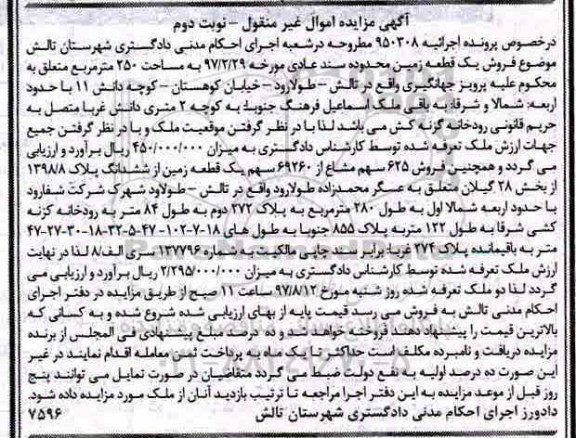 آگهی مزایده اموال غیر منقول - نوبت دوم
درخصوص پرونده اجرائیه ۹۵۰۳۰۸ مطروحه درشعبه اجرای احکام مدنی دادگستری شهرستان تالش
موضوع فروش یک قطعه زمین محدوده سند عادی مورخه ۹۷/۲/۲۹ به مساحت ۲۵۰ مترمربع متعلق به
محکوم علیه پرویز جهانگیری واقع در تالش - طولارود - خیابان کوهستان - کوچه دانش ۱۱ با حدود
اربعه: شمالا و شرقا: به باقی ملک اسماعیل فرهنگ جنوبا: به کوچه ۲ متری دانش غربا متصل به
حریم قانونی رودخانه گزنه کش می باشد لذا با در نظر گرفتن موقعیت ملک و با در نظر گرفتن جمیع
جهات ارزش ملک تعرفه شده توسط کارشناس دادگستری به میزان ۴۵۰/۰۰۰/۰۰۰ ریال برآورد و ارزیابی
می گردد و همچنین فروش ۶۲۵ سهم مشاع از ۶۹۲۶۰ سهم یک قطعه زمین از ششدانگ پلاک ۱۳۹۸/۸
از بخش ۲۸ گیلان متعلق به عسگر محمدزاده طولارود واقع در تالش - طولاود شهرک شرکت شفارود
با حدود اربعه شمالا اول به طول ۲۸۰ مترمربع به پلاک ۲۷۲ دوم به طول ۸۴ متر به رودخانه کزنه
کشی شرقا به طول ۱۲۲ متربه پلاک ۸۵۵ جنوبا به طول های ۱۸-۷-۱۰۲-۴۷-۵-۳۲-۱۸-۳۰-۲۷-۴۷
متر به باقیمانده پلاک ۲۷۴ غربا: برابر سند چاپی مالکیت به شماره ۱۳۷۷۹۶ سری الف/۸ لذا در نهایت
ارزش ملک تعرفه شده توسط کارشناس دادگستری به میزان ۲/۲۹۵/۰۰۰/۰۰۰ ریال برآورد و ارزیابی می
گردد لذا دو ملک تعرفه شده روز شنبه مورخ ۹۷/۸/۱۲ ساعت ۱۱ صبح از طریق مزایده در دفتر اجرای
احکام مدنی تالش به فروش می رسد قیمت پایه از بهای ارزیابی شده شروع شده و به کسانی که
بالاترین قیمت را پیشنهاد دهند فروخته خواهد شد و ده درصد مبلغ پیشنهادی فی المجلس از برنده
مزایده دریافت و نامبرده مکلف است حداکثر تا یک ماه به پرداخت ثمن معامله اقدام نمایند در غیر
این صورت ده درصد اولیه به نفع دولت ضبط می گردد متقاضیان در صورت تمایل می توانند پنج
روز قبل از موعد مزایده به این دفتر اجرا مراجعه تا ترتیب بازدید آنان از ملک مورد مزایده داده شود.
دادورز اجرای احکام مدنی دادگستری شهرستان تالش ۷۵۹۶